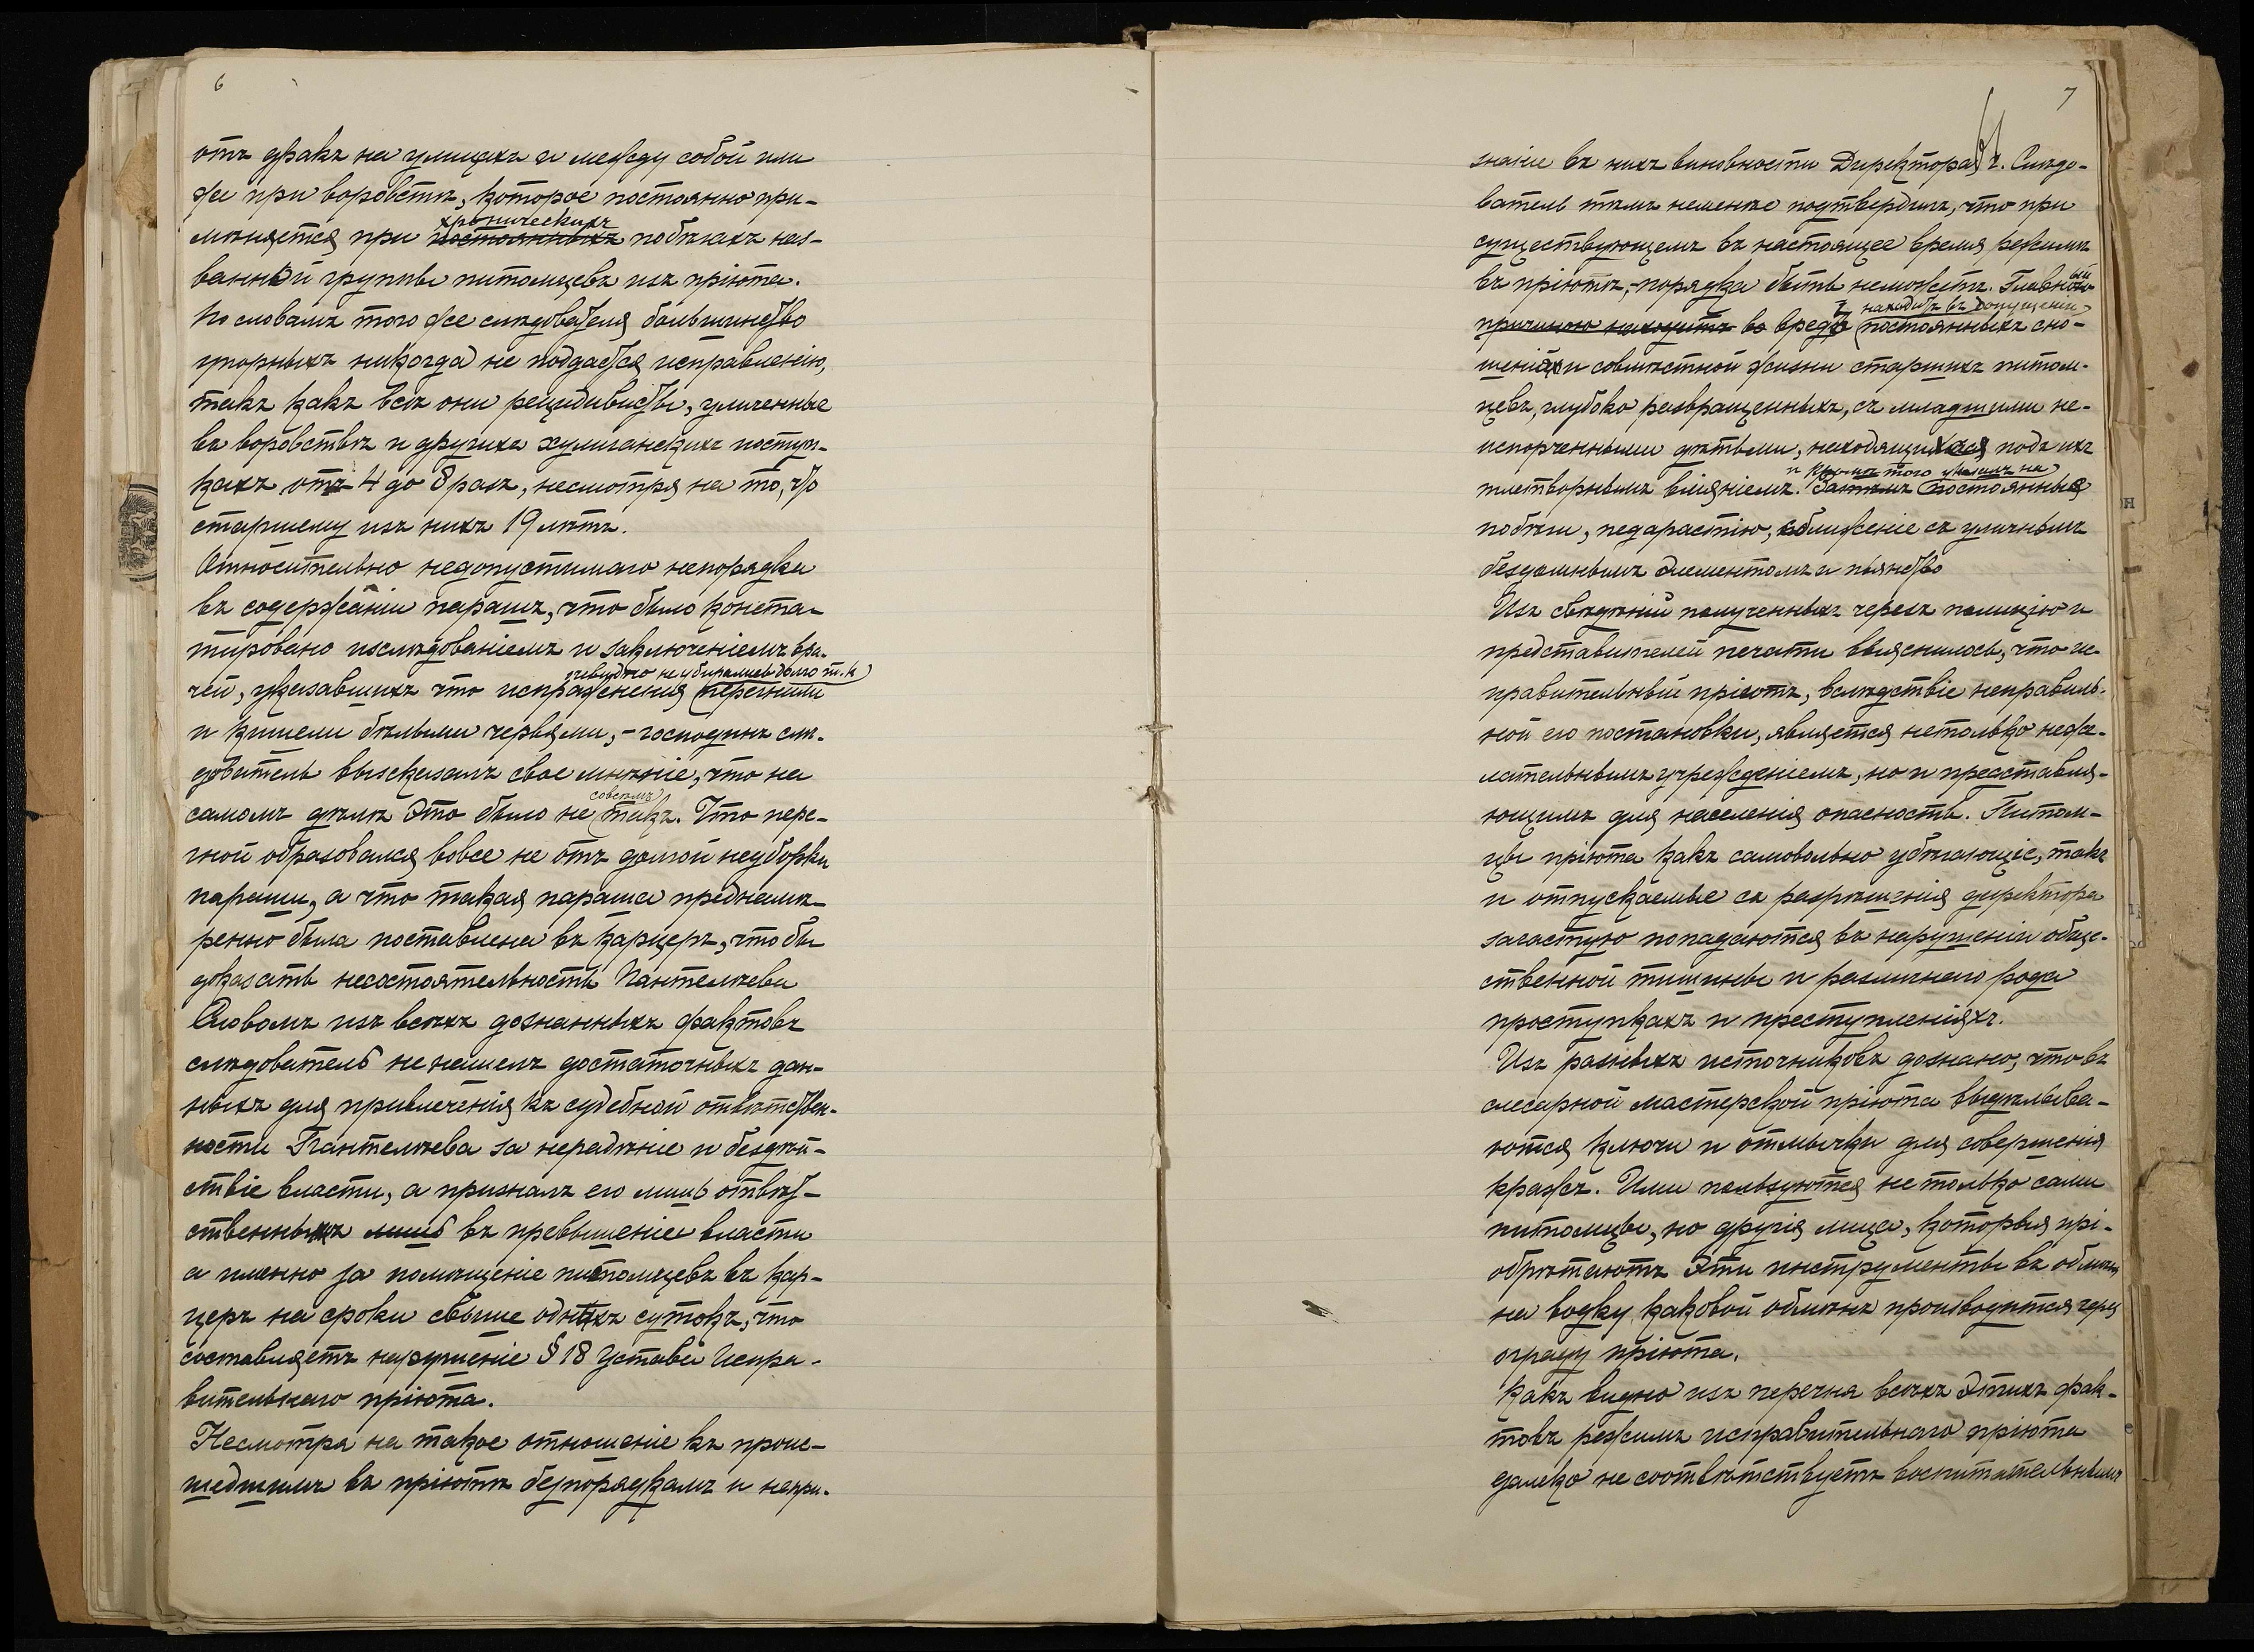 6
отъ дракъ на улицахъ и между собой или
же при воровствѣ, которое постоянно при-
хроническихъ
мѣняется при постоянныхъ побѣгахъ наз-
ванной группы питомцевъ изъ пріюта.
По словамъ того же слѣдователя большинство
упорныхъ никогда не поддается исправленію,
такъ какъ всѣ они рецидивисты, уличенные
въ воровствѣ и другихъ хулиганскихъ поступ-
кахъ отъ 4 до 8 разъ, несмотря на то, что
старшему изъ нихъ 19 лѣтъ.
Относительно недопустимаго непорядка
въ содержаніи парашъ, что было конста-
тировано изслѣдованіемъ и заключеніемъ вра-
очевидно не убирались долго т.к
чей, указавшихъ что испражненія перегнили
и кишели бѣлыми червями, - господинъ слѣ-
дователь высказалъ свое мнѣніе, что на
совсѣмъ
самомъ дѣлѣ это было не такъ. Что пере-
гной образовался вовсе не отъ долгой неуборки
параши, а что такая параша преднамѣ-
ренно была поставлена въ карцеръ, что бы
доказать несостоятельность Пантелѣева
Словомъ изъ всѣхъ дознанныхъ фактовъ
слѣдователь не нашелъ достаточныхъ дан-
ныхъ для привлеченія къ судебной отвѣтствен-
ности Пантелѣева за нерадѣніе и бездѣй-
ствіе власти, а призналъ его лишь отвѣт-
ственнымъ лишь въ превышеніе власти
а именно за помѣщеніе питомцевъ въ кар-
церъ на сроки свыше однѣхъ сутокъ, что
составляетъ нарушеніе § 18 Устава Испра-
вительнаго пріюта.
Несмотря на такое отношеніе къ проис-
шедшимъ въ пріютѣ безпорядкамъ и непри-
7
знаніе въ нихъ виновности Директора, г. Слѣдо-
ватель тѣмъ неменѣе подтвердилъ, что при
существующемъ въ настоящее время режимѣ
въ пріютѣ, - порядка быть неможетъ. Главный
находитъ въ допущеніи
причиною находитъ во вредъ постоянныхъ сно-
шеній и совмѣстной жизни старшихъ питом-
цевъ, глубоко развращенныхъ, съ младшими не-
испорченными дѣтьми, находящихся подъ ихъ
и кромѣ того указалъ на
тлетворнымъ вліяніемъ. Затѣмъ постоянные
побѣги, педарастію, сближеніе съ уличнымъ
бездомнымъ элементомъ и пьянство
Изъ свѣдѣній полученныхъ черезъ полицію и
представителей печати выяснилось, что ис-
правительный пріютъ, вслѣдствіе неправиль-
ной его постановки, является нетолько неже-
лательнымъ учрежденіемъ, но и представля-
ющимъ для населенія опасность. Питом-
цы пріюта какъ самовольно убѣгающіе, такъ
и отпускаемые съ разрѣшенія директора
зачастую попадаются въ нарушеніи обще-
ственной тишины и различнаго рода
проступкахъ и преступленіяхъ.
Изъ разныхъ источниковъ дознано, что въ
слесарной мастерской пріюта выдѣлыва-
ются ключи и отмычки для совершенія
кражъ. Ими пользуются не только сами
питомцы, но другія лица, которыя прі-
обрѣтаютъ эти инструменты въ обмѣнъ
на водку каковой обмѣнъ производится черезъ
ограду пріюта.
Какъ видно изъ перечня всѣхъ этихъ фак-
товъ режимъ исправительнаго пріюта
далеко не соотвѣтствуетъ воспитательнымъ